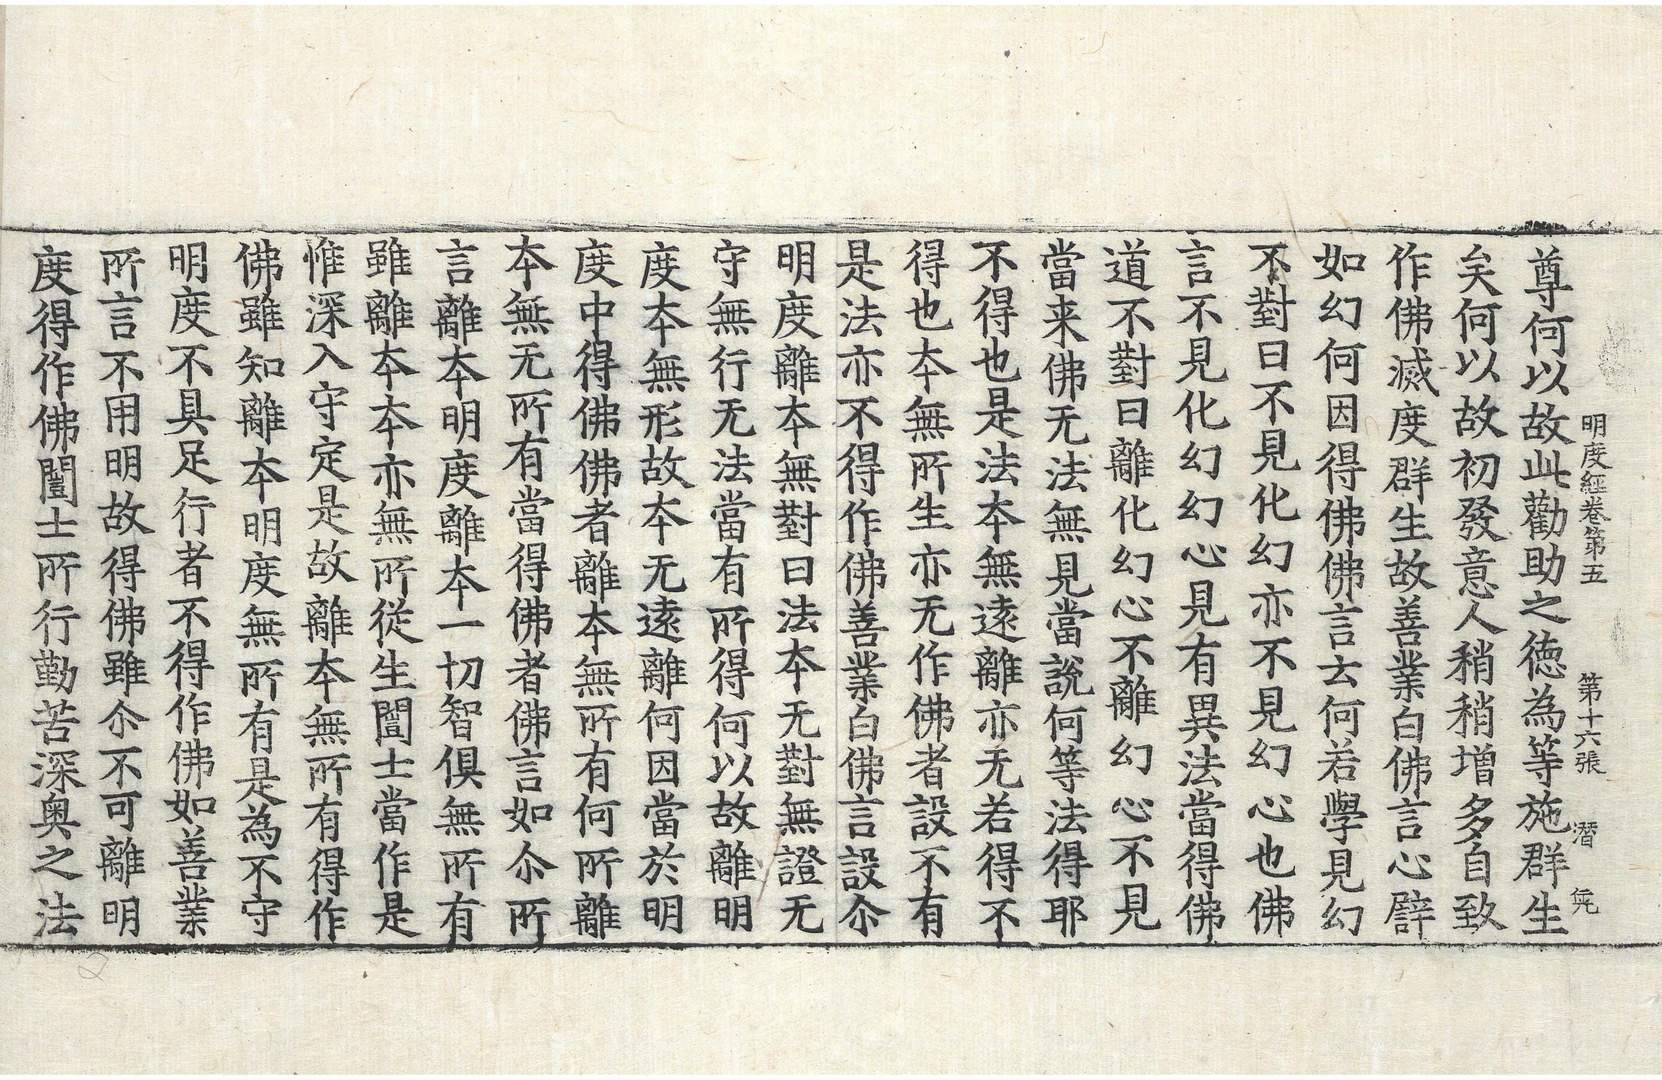 明度経卷第五　第十六張　潛
尊何以故此勸助之徳為等施群生
矣何以故初發意人稍稍增多自致
作佛滅度群生故善業白佛言心譬
如幻何因得佛佛言云何若學見幻
不對曰不見化幻亦不見幻心也佛
言不見化幻幻心見有異法當得佛
道不對曰離化幻心不離幻心不見
當来佛无法無見當說何等法得耶
不得也是法夲無遠離亦无若得不
得也夲無所生亦无作佛者設不有
是法亦不得作佛善業白佛言設尒
明度離夲無對曰法夲无對無證无
守無行无法當有所得何以故離明
度夲無形故夲无遠離何因當於明
度中得佛佛者離夲無所有何所離
夲無无所有當得佛者佛言如尒所
言離夲明度離夲一切智俱無所有
雖離夲夲亦無所從生闓士當作是
惟深入守定是故離夲無所有得作
佛雖知離夲明度無所有是為不守
明度不具足行者不得作佛如善業
所言不用明故得佛雖尒不可離明
度得作佛闓士所行勤苦深奥之法